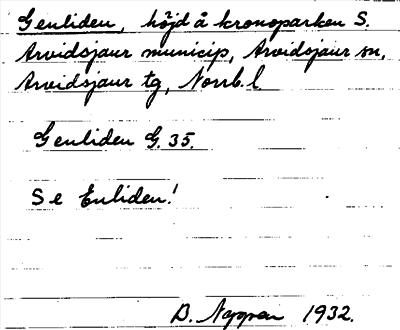 Genliden, höjd å kronoparken S.
Arvidsjaur municip, Arvidsjaur sn,
Arvidsjaur tg, Norrb. l
Genliden G. 35.
Se Enliden!
B. 1932.